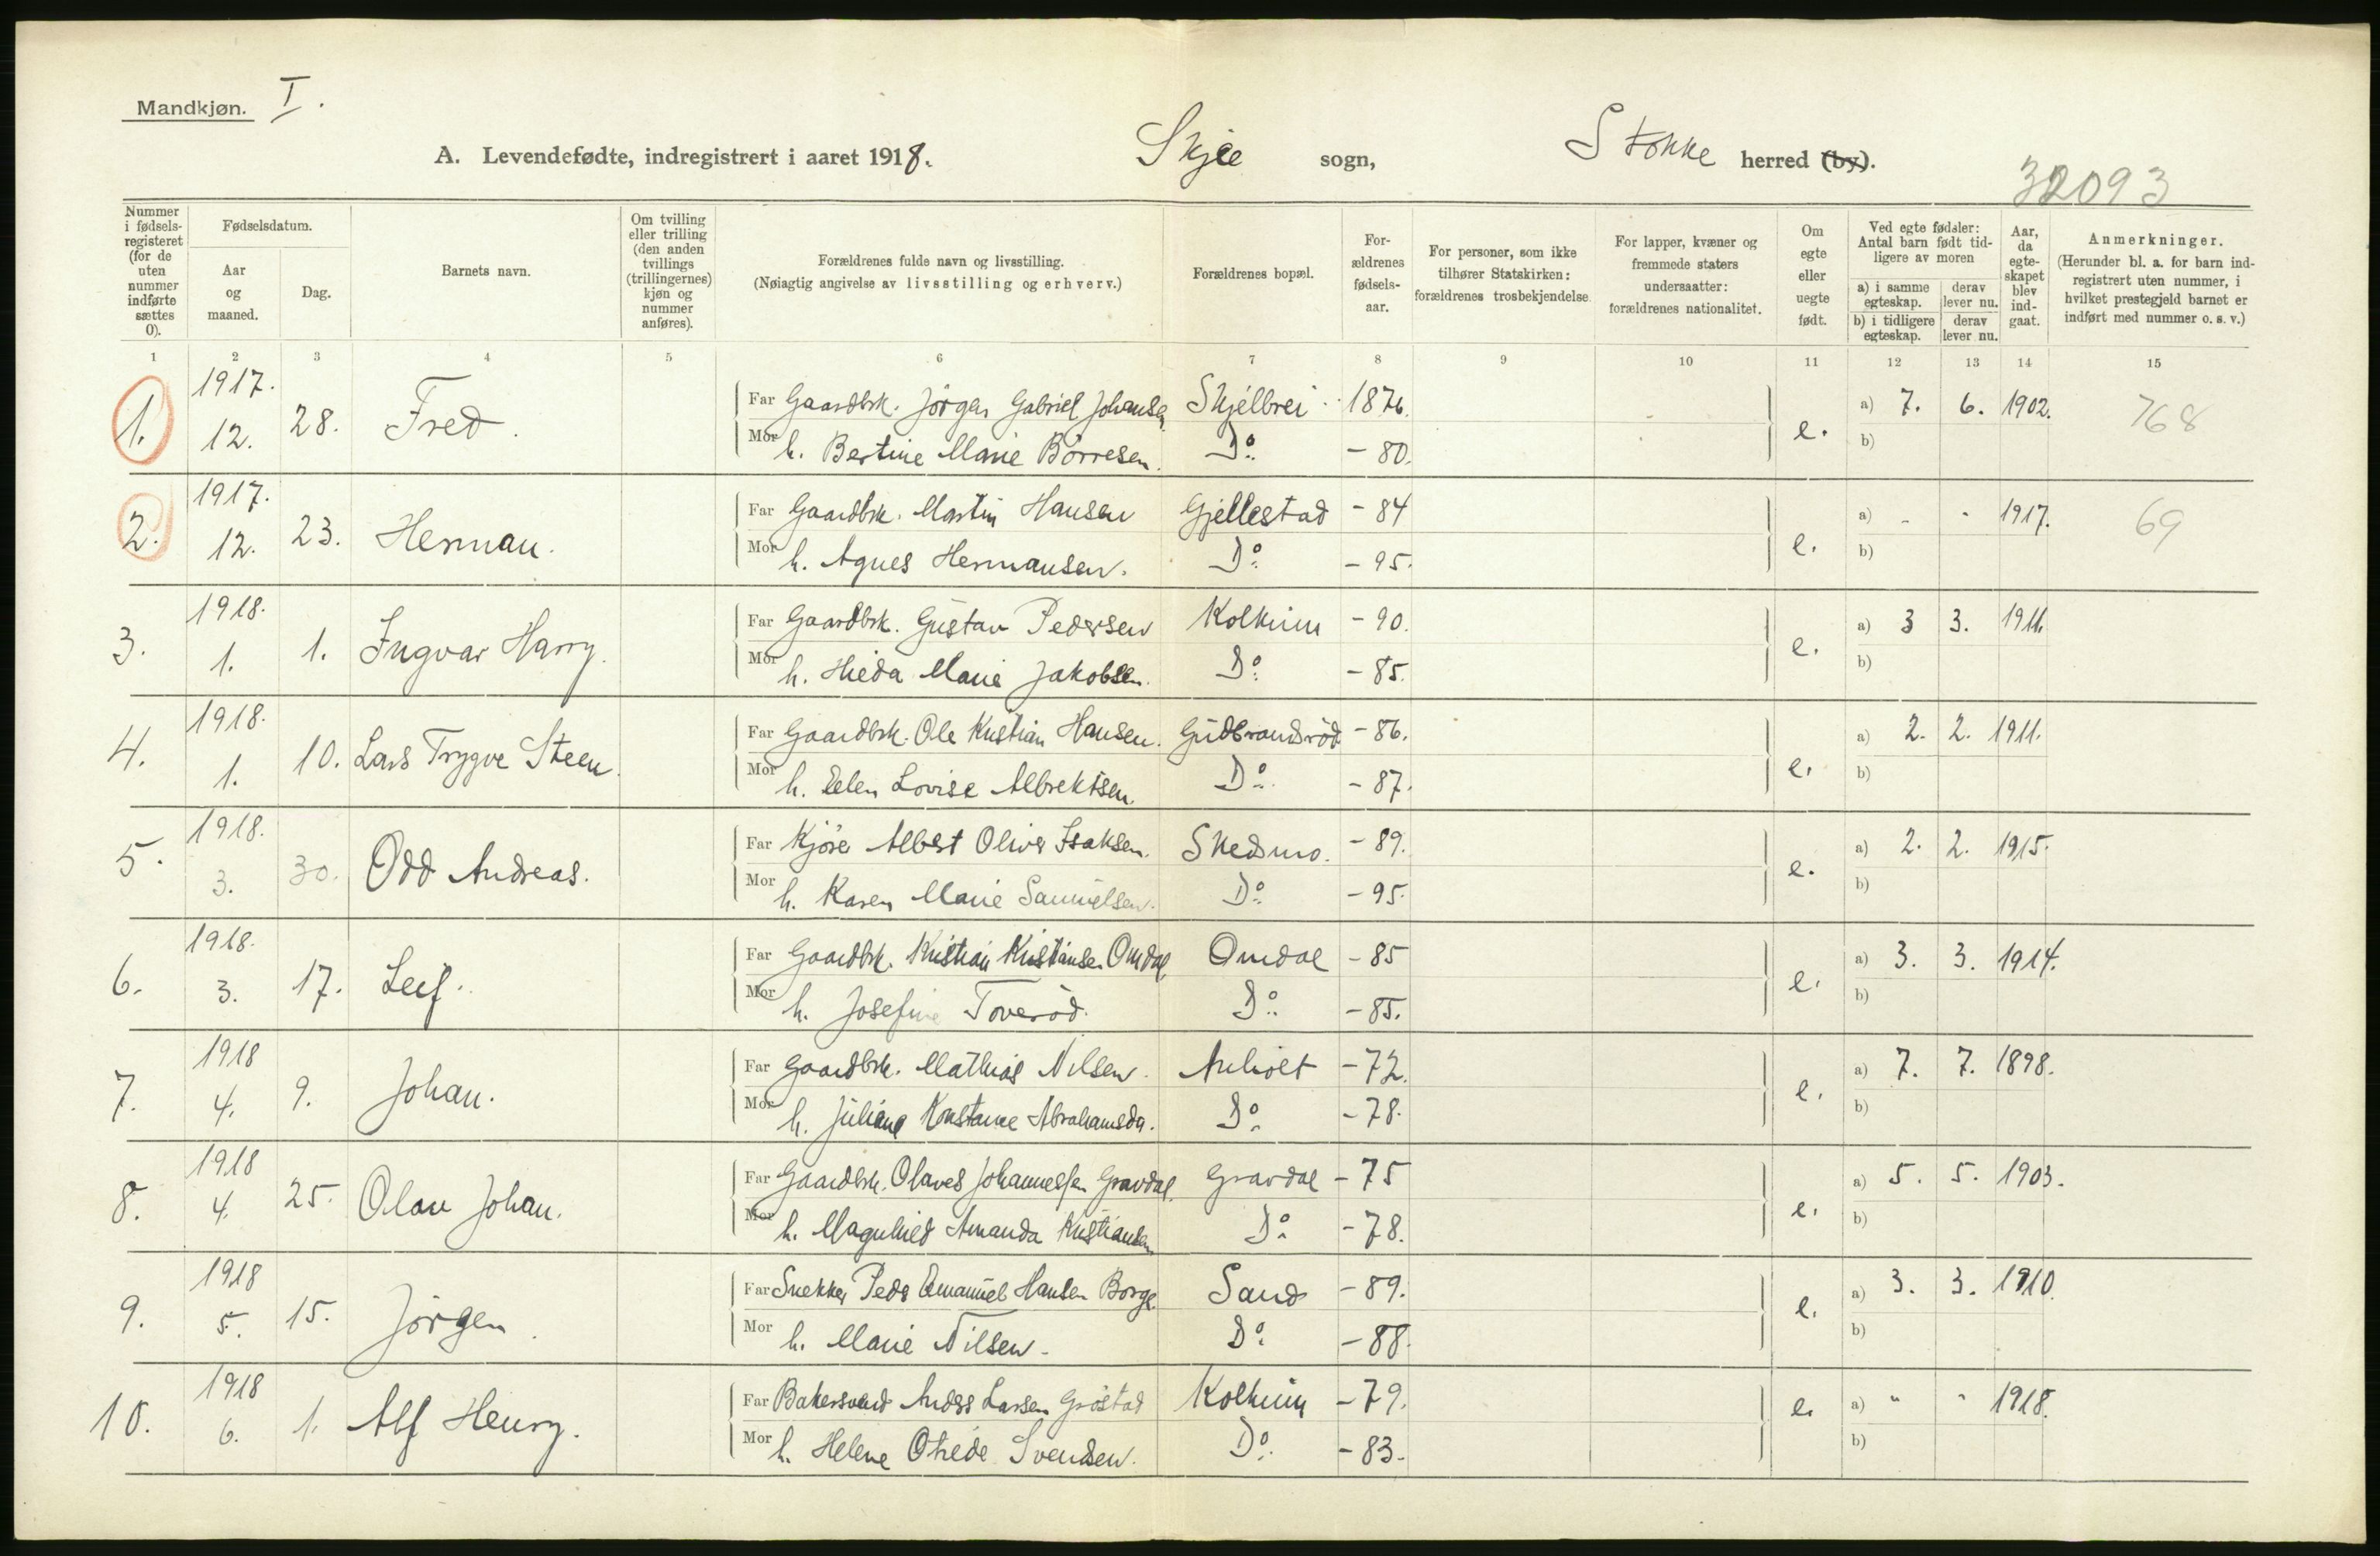 Mandkjøn. I.
A. Levendefødte, indregistrert i aaret 1918. Skjee sogn, Stokke herred (by).
32093
Nummer i fødselsregisteret (for de uten nummer indførte sættes 0).
Fødselsdatum.
Aar og maaned.
Dag.
Barnets navn.
Om tvilling eller trilling (den anden tvillings (trillingernes) kjøn og nummer anføres).
Forældrenes fulde navn og livsstilling.
(Nøiagtig angivelse av livsstilling og erhverv.)
Forældrenes bopæl.
Forældrenes fødselsaar.
For personer, som ikke tilhører Statskirken: forældrenes trosbekjendelse.
For lapper, kvæner og fremmede staters undersaatter: forældrenes nationalitet.
Om egte eller uegte født.
Ved egte fødsler: Antal barn født tidligere av moren
a) i samme egteskap. derav lever nu.
b) i tidligere egteskap. derav lever nu.
Aar, da egteskapet blev indgaat.
Anmerkninger.
(Herunder bl. a. for barn indregistrert uten nummer, i hvilket prestegjeld barnet er indført med nummer o. s. v.)
1 2 3 4 5 6 7 8 9 10 11 12 13 14 15
1. 1917. 12. 28. Fred. Far Gaardbrk. Jörgen Gabriel Johansen Skjelbrei 1876. e. a) 7. 6. 1902. 768
Mor h. Bertine Marie Börresen. Do. - 80. b)
2. 1917. 12. 23. Herman. Far Gaardbrk. Martin Hansen Gjellestad - 84 e. a) - - 1917. 69
Mor h. Agnes Hermansen. Do. - 95. b)
3. 1918. 1. 1. Ingvar Harry. Far Gaardbrk. Gustav Pedersen - 90. e. a) 3 3. 1911.
Mor h. Marie Jakobsen. Do. - 85. b)
4. 1918. 1. 10. Lars Trygve Steen. Far Gaardbrk. Ole Kristian Hansen. Gudbrandsröd - 86. e. a) 2. 2. 1911.
Mor h. Ellen Lovise Albrektsen. Do. - 87. b)
5. 1918. 3. 30. Odd Andreas. Far Kjörer Albert Oliver Isaksen. Skedsmo. - 89. e. a) 2. 2. 1915.
Mor h. Karen Marie Samuelsen. Do. - 95. b)
6. 1918. 3. 17. Leif. Far Gaardbrk. Kristian Kristiansen Omdal Omdal - 85 e. a) 3. 3. 1914.
Mor h. Josefine Toveröd. Do. - 85. b)
7. 1918 4. 9. Johan. Far Gaardbrk. Mathias Nilsen. Anholt - 72. e. a) 7. 7. 1898.
Mor h. Juliane Konstance Abrahamsdr. Do. - 78. b)
8. 1918 4. 25. Olav Johan. Far Gaardbrk. Olaves Johannessen Gravdal. Gravdal - 75 e. a) 5. 5. 1903.
Mor h. Magnhild Amanda Kristiansen Do. - 78. b)
9. 1918 5. 15. Jörgen. Far Snekker Peder Emanuel Hansen Borge. Sand - 89. e. a) 3. 3. 1910.
Mor h. Marie Nilsen. Do. - 88. b)
10. 1918 6. 1. Alf Henry. Far Bakersvend Anders Larsen Gröstad - 79. e. a) " " 1918.
Mor h. Helene Svendsen. Do. - 83. b)